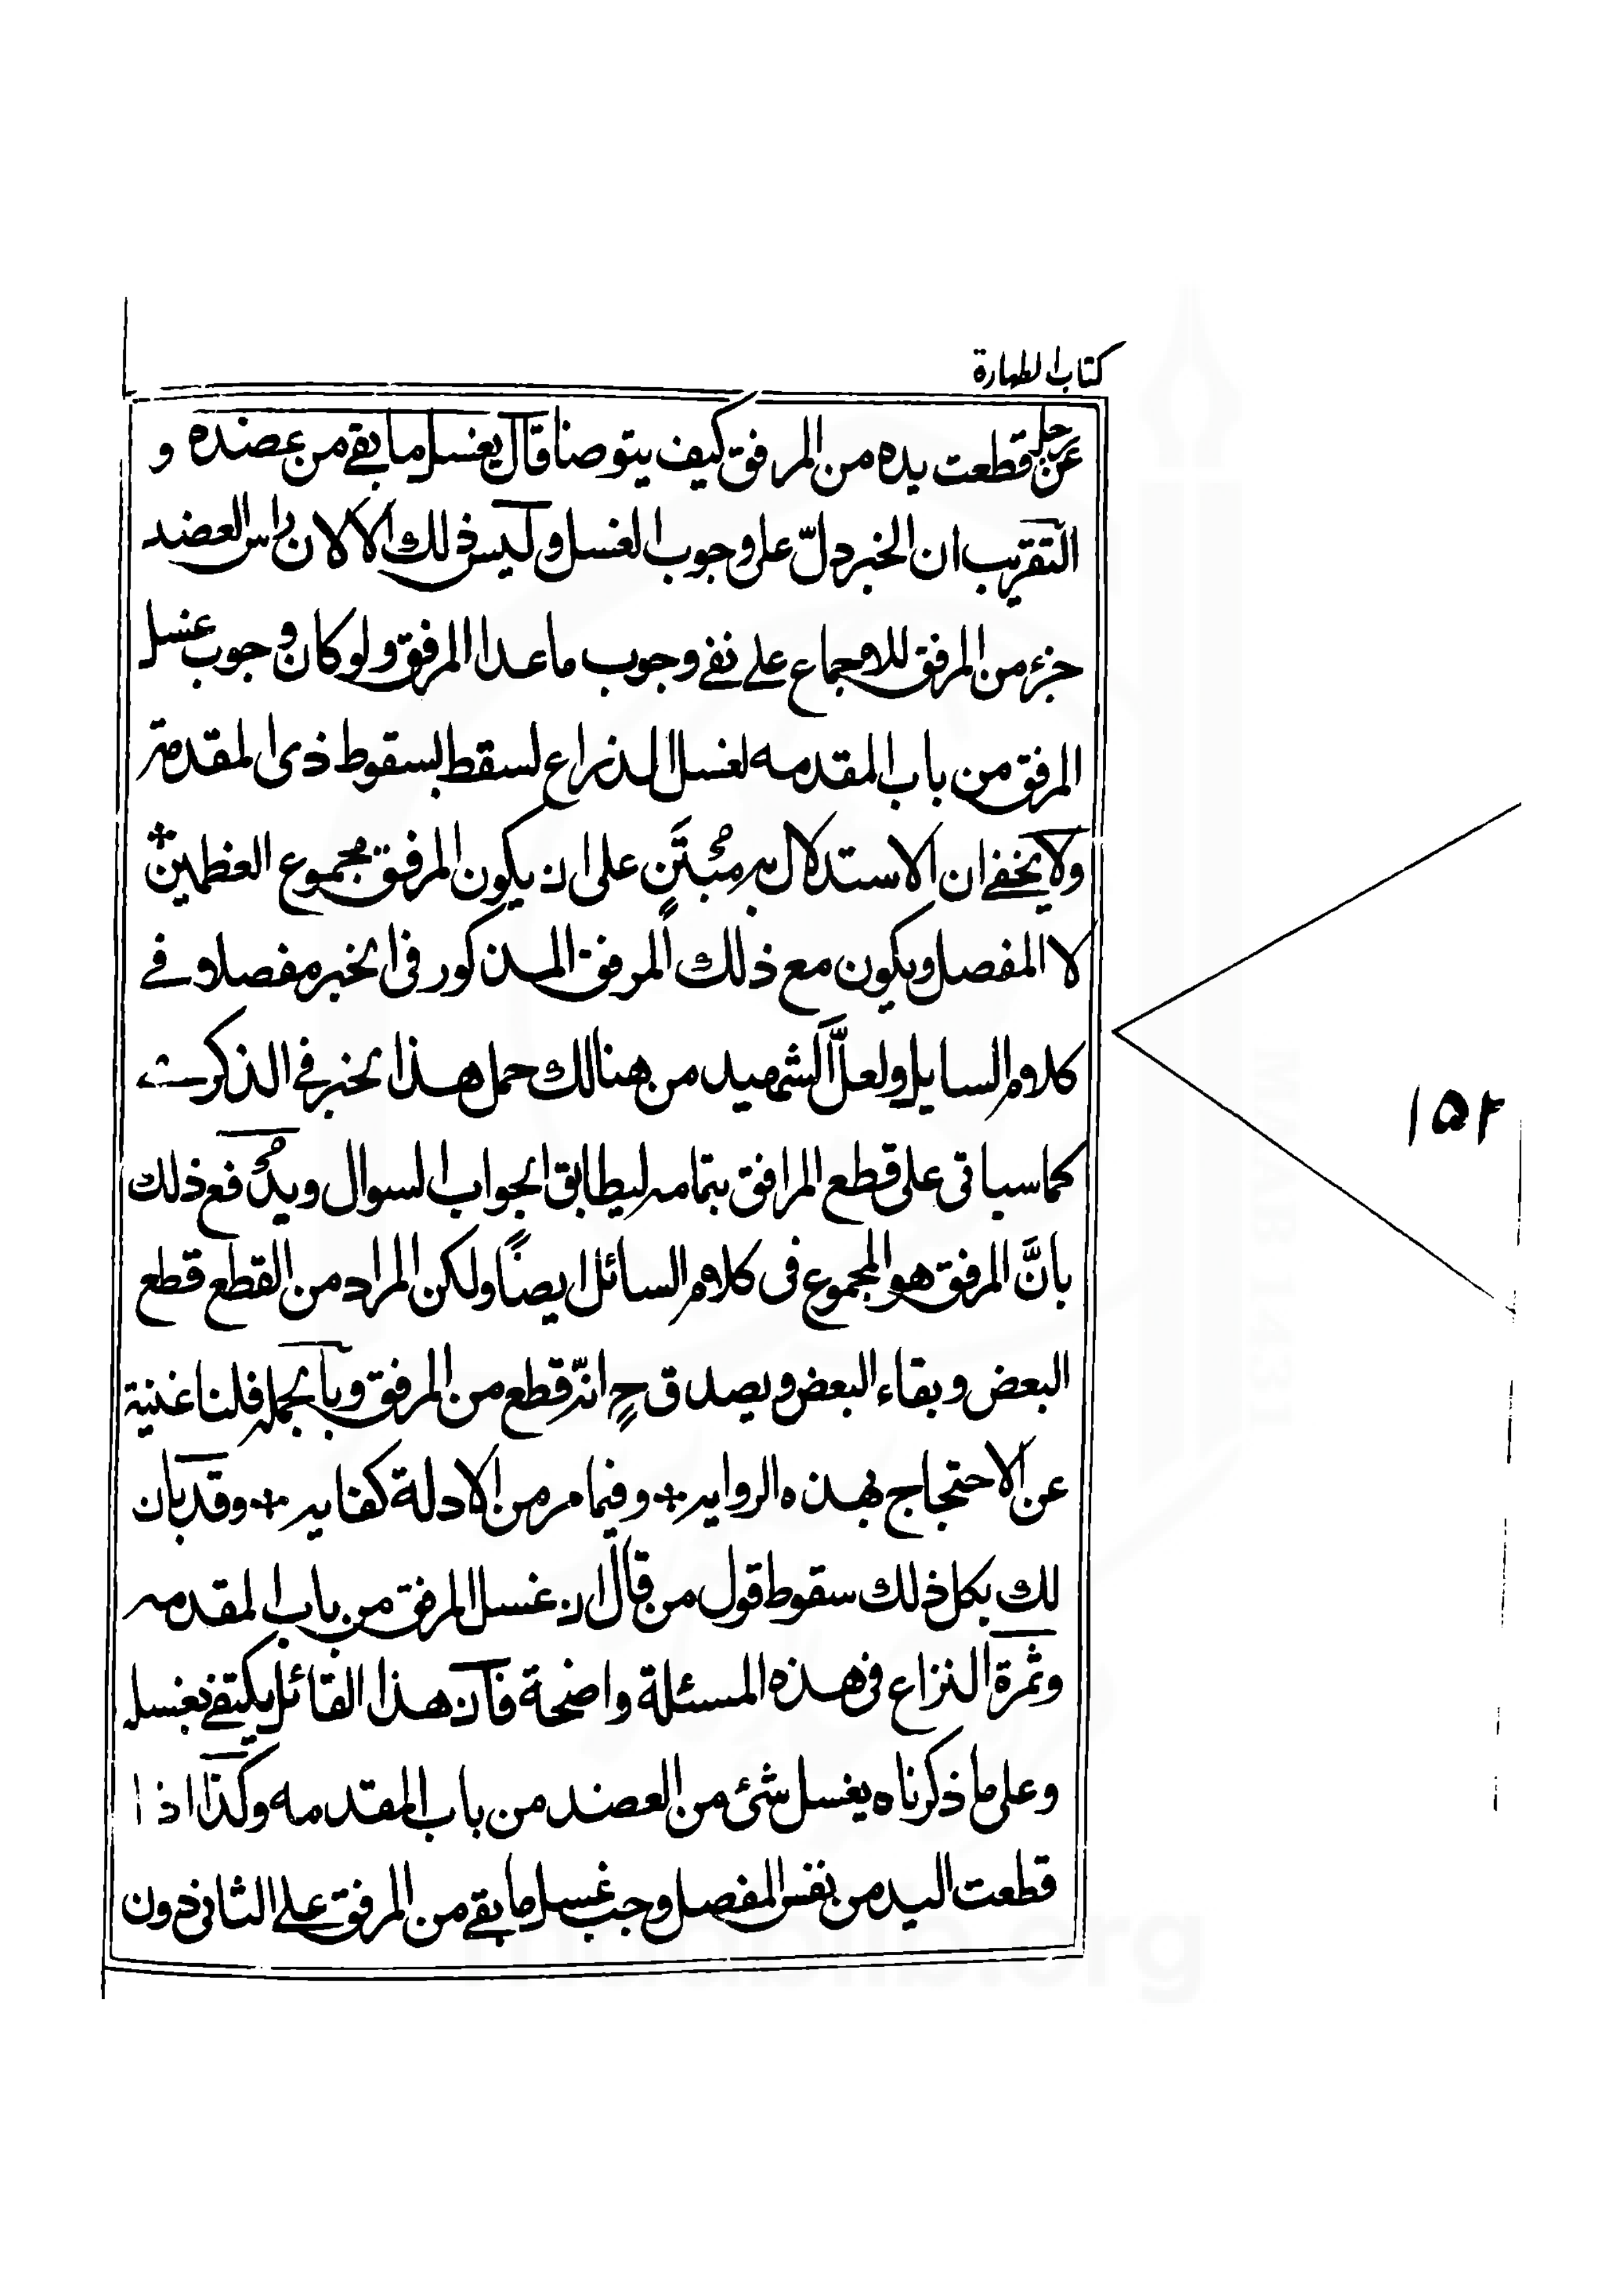 كتاب الطهارة
عن رجل قطعت يده من المرفق كيف يتوضا قال يغسل ما بقے من عضده و
التقريب ان الخبر دلّ على وجوب الغسل وليس ذلك الا لان راس العضد
جزء من المرفق للاجماع علے نفے وجوب ما عدا المرفق ولو كان وجوب غسل
المرفق من باب المقدمه لغسل الذراع لسقط بسقوط ذى المقدمة
ولا يخفے ان الاستدلال به مُبْتَنٍ على ان يكون المرفق مجموع العظمين
لا المفصل ويكون مع ذلك المرفق المذكور فى الخبر مفصلا وفے
كلام السايل ولعلّ الشهيد من هنالك حمل هذا الخبر فے الذكرے
كما سياتى على قطع المرافق بتمامه ليطابق الجواب السوال ويُدفع ذلك
بانَّ المرفق هو المجموع فى كلام السائل ايضًا ولكن المراد من القطع قطع
البعض وبقاء البعض ويصدق حٍ انه قطع من المرفق وبالجمله فلنا غنية
عن الاحتجاج بهذه الروايه وفيما مر من الادلة كفايه وقد بان
لك بكل ذلك سقوط قول من قال ان غسل المرفق من باب المقدمه
وثمرة النزاع فى هذه المسئلة واضحة فان هذا القائل يكتفے بغسله
وعلى ما ذكرناه يغسل شئ من العضد من باب المقدمه وكذا اذا
قطعت اليد من نفس المفصل وجب غسل ما بقے من المرفق علے الثانى دون
۱۵۲